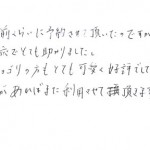 前くらいに予約させて頂いたのですが
応でとても助かりました。
の方もとても可愛く好評でして
があればまた利用させて頂きます